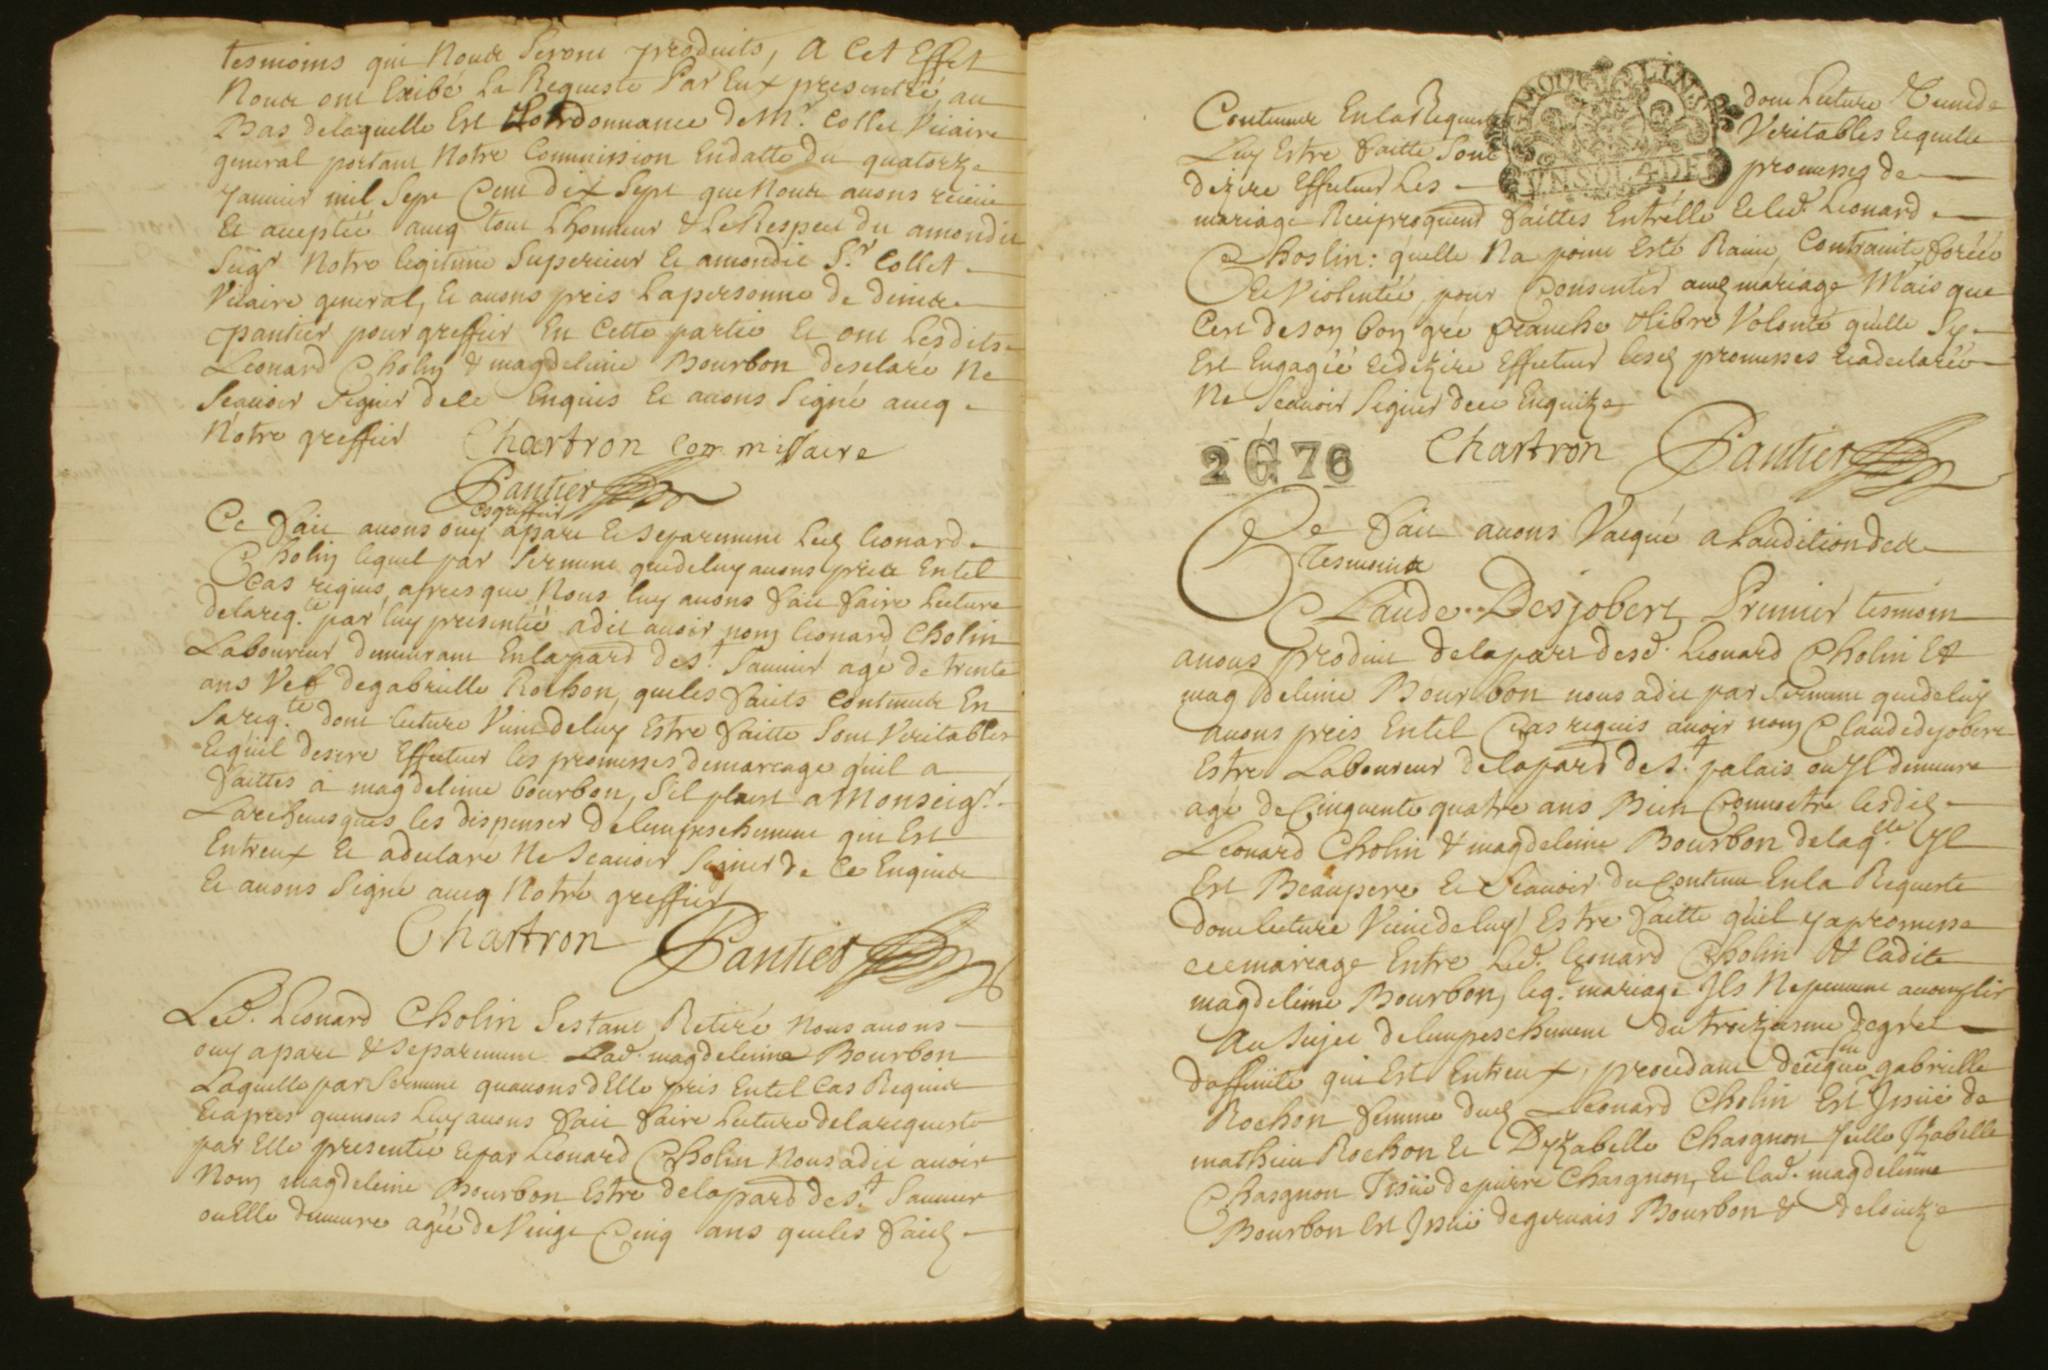 tesmoins qui Nous Seront produits, A Cet Effet
Nous ont Exibé La Requeste Par Eux presentée, au
Bas delaquelle Est Lordonnance de Mr. Collet Vicaire
general portant Notre Commission Endatte du quatorze
Janvier mil Sept Cent dix Sept que Nous avons réceüe
Et acceptée avecq tout Lhonneur & Le Respect du amondit
Seigr. Notre legitime Superieur Et amondit Sr. Collet
Vicaire general, Et avons pris La personne de
pantier pour greffier En Cette partie Et ont Lesdits
Leonard Cholin & magdeleine Bourbon desclaré Ne
Scavoir Signer de Ce Enquis Et avons Signé avecq
Notre greffier Chartron Commissaire
Pantier
greffier
Ce fait avons ouy apart Et separement Led. Leonard
Cholin lequel par Serment quedeluy avons pris Entel
Cas requis, apres que Nous luy avons fait faire Lecture
delareq.te par luy presentée adit avoir nom Leonard Cholin
Laboureur demeurant En laparr. de St. Saunier agé de trente
ans Vef degabrielle Rochon, queles faits Contenus En
Sareq.te dont lecture Vient deluy Estre faitte Sont Veritables
Et quil desire Effectuer les promesses demariage quil a
faittes à magdeleine bourbon, Sil plaist a Monseigr.
Larchevesque les dispenser de lempeschement qui Est
Entreux Et adeclaré Ne Scavoir Signer de Ce Enquis
Et avons Signé avecq Notre greffier
Chartron Pantier
Led. Leonard Cholin Sestant Retiré Nous avons
ouy apart & separement Lad. magdeleine Bourbon
Laquelle par Serment quavons dElle pris Entel Cas Requis
Et apres quenous Luy avons fait faire Lecture delarequeste
par Elle presentée Et par Leonard Cholin Nous adit avoir
Nom magdeleine Bourbon Estre delaparr. de St. Saunier
ou Elle demeure agée de Vingt Cinq ans queles faits
Contenus En la Requeste dont Lecture Vient de
Luy Estre faitte Sont Veritables Et quelle
dezire Effectuer Les promesses de
mariage Reciproquement faittes Entrelle Et led. Leonard
Choslin: quelle Na point Esté Ravie, Contrainte, forcée
Et Violentée, pour Consentir aud. mariage Mais que
Cest de son bon gré franche & libre Volonté quelle Sy
Est Engagée Et dezire Effectuer lesd. promesses Et adeclarée
Ne Scavoir Signer de Ce Enquize
2 G 76 Chartron Pantier
Ce fait avons Vacqué a Laudition des
tesmoins
Claude Desjobert Premier tesmoin
a nous produit dela part desd. Leonard Cholin Et
magdeleine Bourbon nous adit par Serment quedeluy
avons pris Entel Cas requis avoir nom Claude dejobert
Estre Laboureur delaparr. de St. palais ou Yl demeure
agé de Cinquante quatre ans Bien Connoistre lesdits
Leonard Cholin & magdeleine Bourbon delaq.lle Yl
Est Beaupere Et Scavoir du Contenu En la Requeste
dont lecture Vient de luy Estre faitte quil y a promesse
de mariage Entre Led. Leonard Cholin Et ladite
magdeleine Bourbon, leq. mariage Ils Nepeuvent accomplir
Au Sujet delempeschement du troizieme degré
daffinité qui Est Entreux, procedant de Ceque gabrielle
Rochon femme dud. Leonard Cholin Est Issüe de
mathieu Rochon Et Dyzabelle Chasgnon Jcelle Jzabelle
Chasgnon Issüe depierre Chasgnon, Et lad. magdeleine
Bourbon Est Issüe degervais Bourbon &